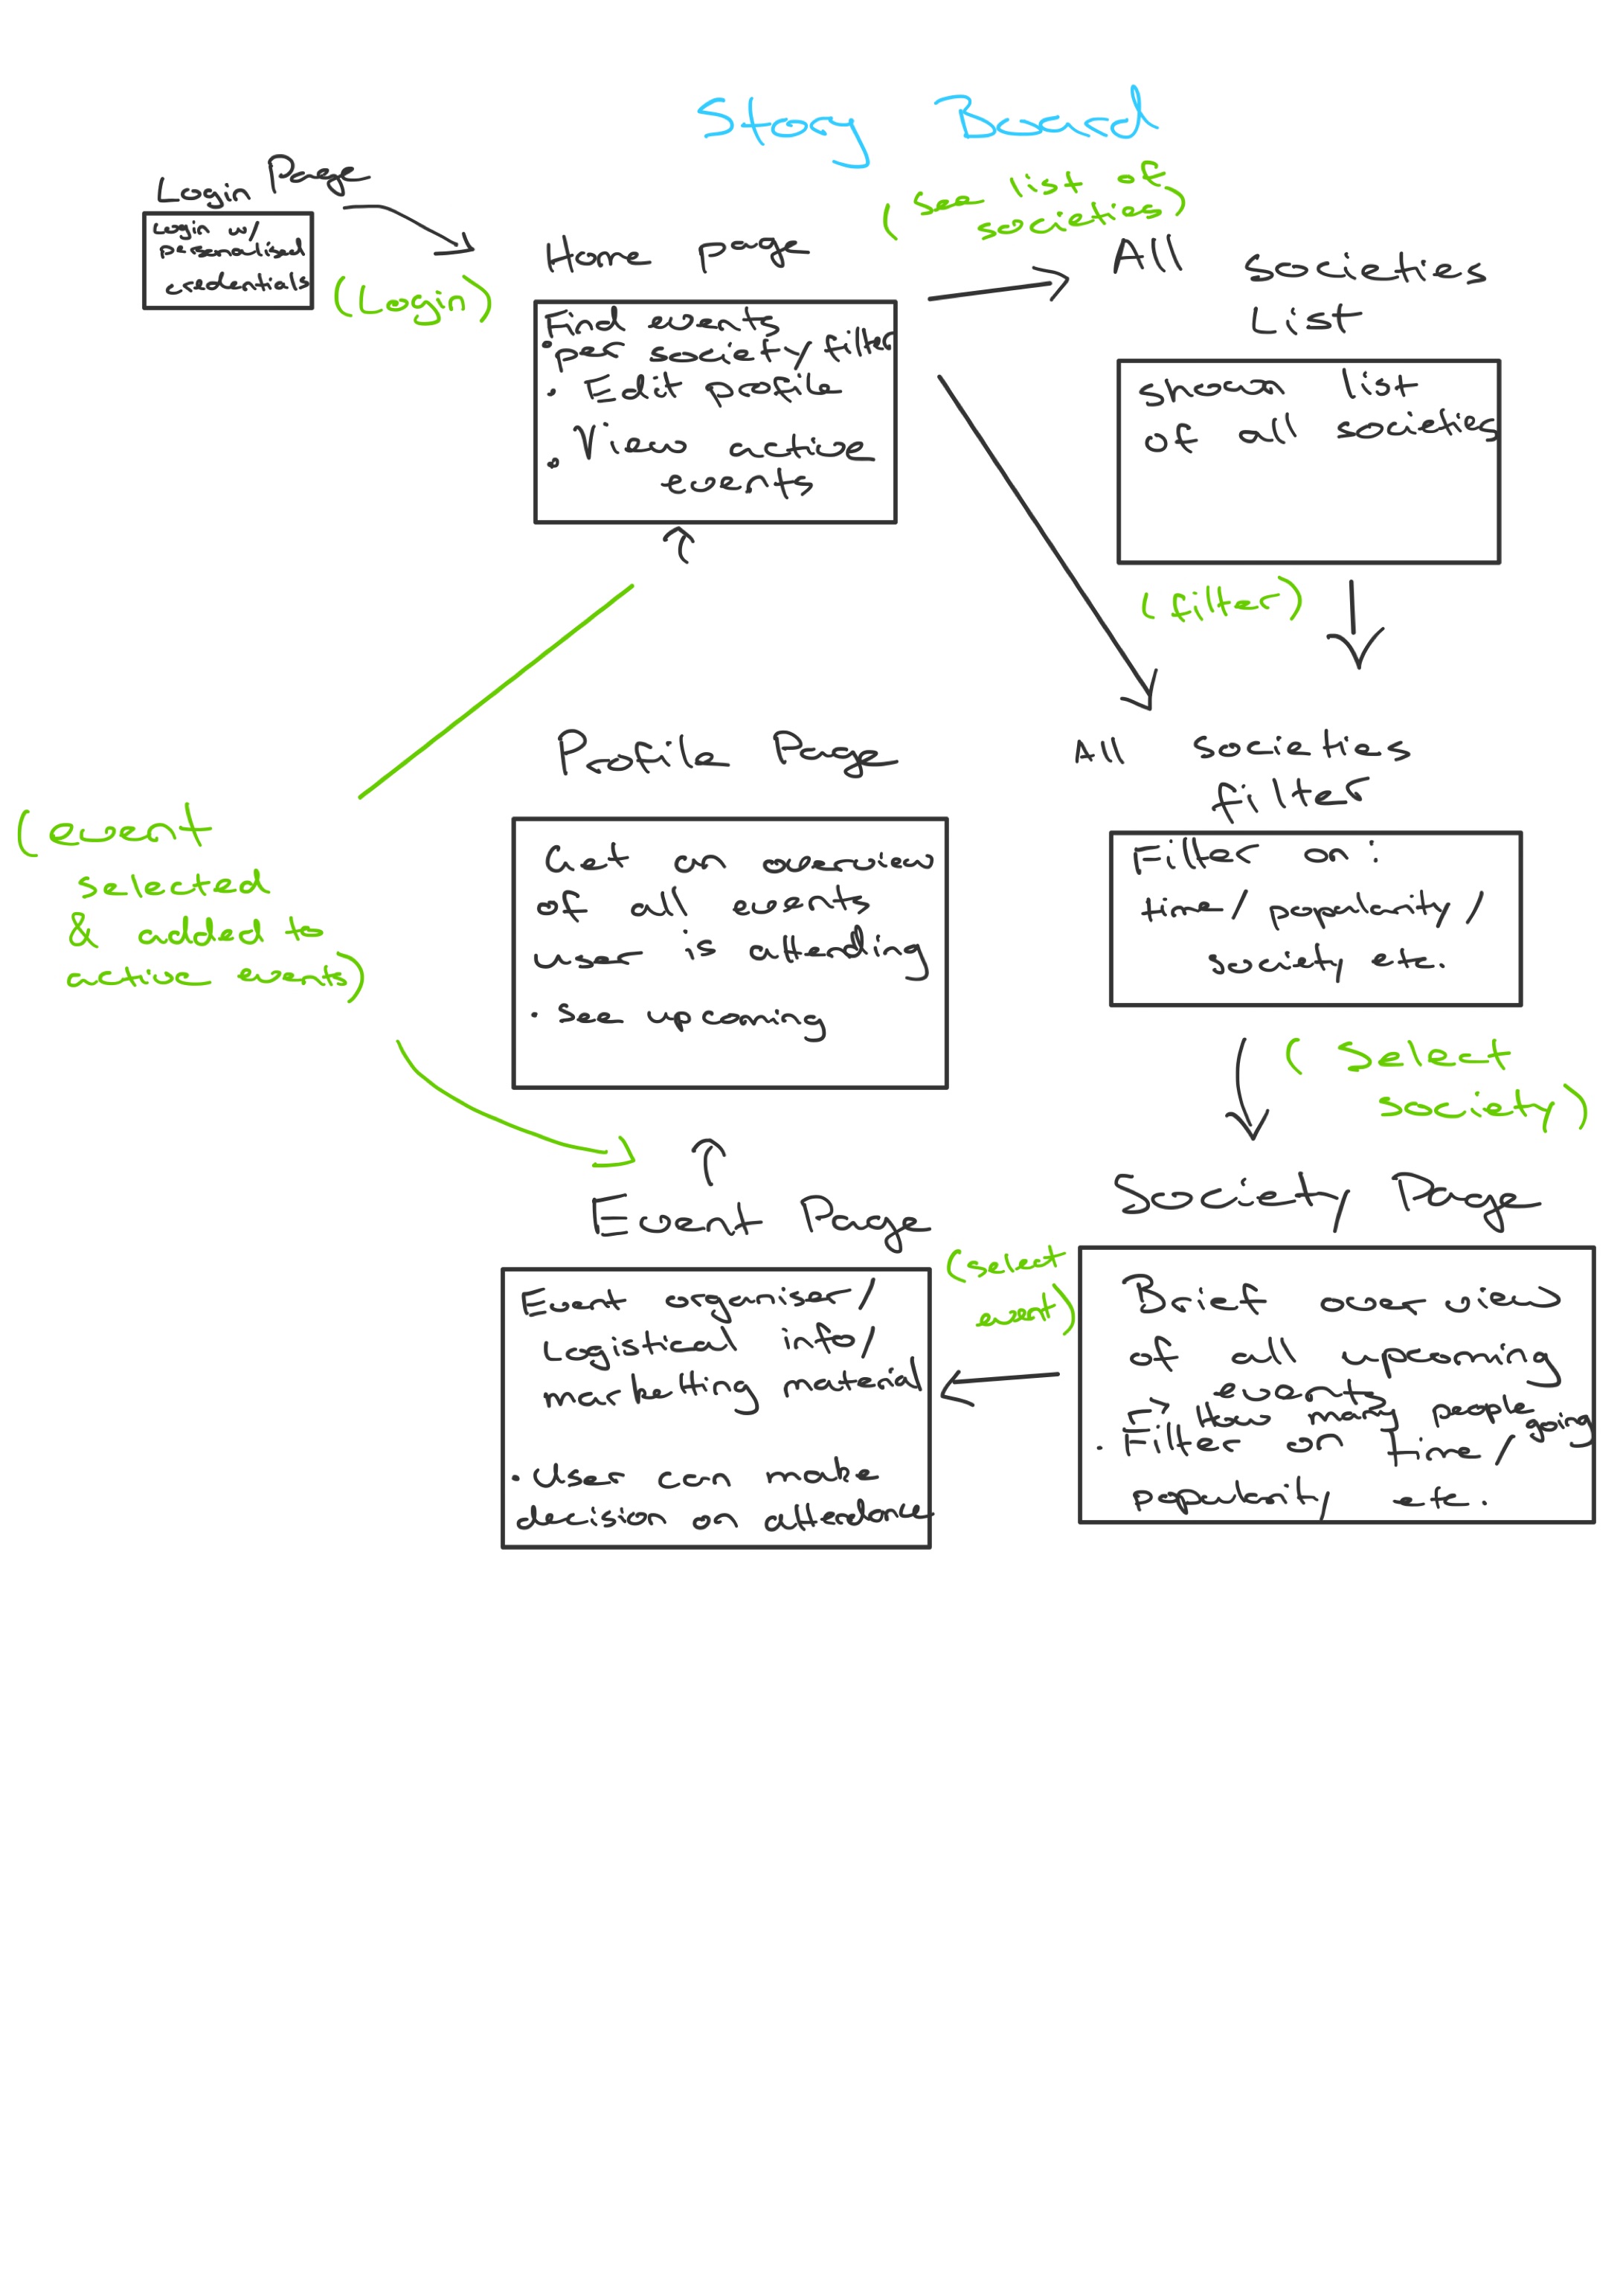 Story Board
Login Page
Login w/
personalised
credentials
(Login)
Home page
Find events
• per society/filter
• Edit profile
• View active
events
(see list of
societies)
All societies
List
show list
of all societies
(filter)
All societies
filter
Filter on :
time/ popularity/
society etc.
(select
society)
Society Page
Brief over view
of all upcoming
events
↳ How many people
going
• Filter on time/
popularity etc.
(select
event)
Event Page
Event organiser/
Logistical info/
marketing material
• User can make
decision on attendance
Profile Page
Get an overview
of all events
user is attending
• See upcoming
(event
selected
& added to
active events)